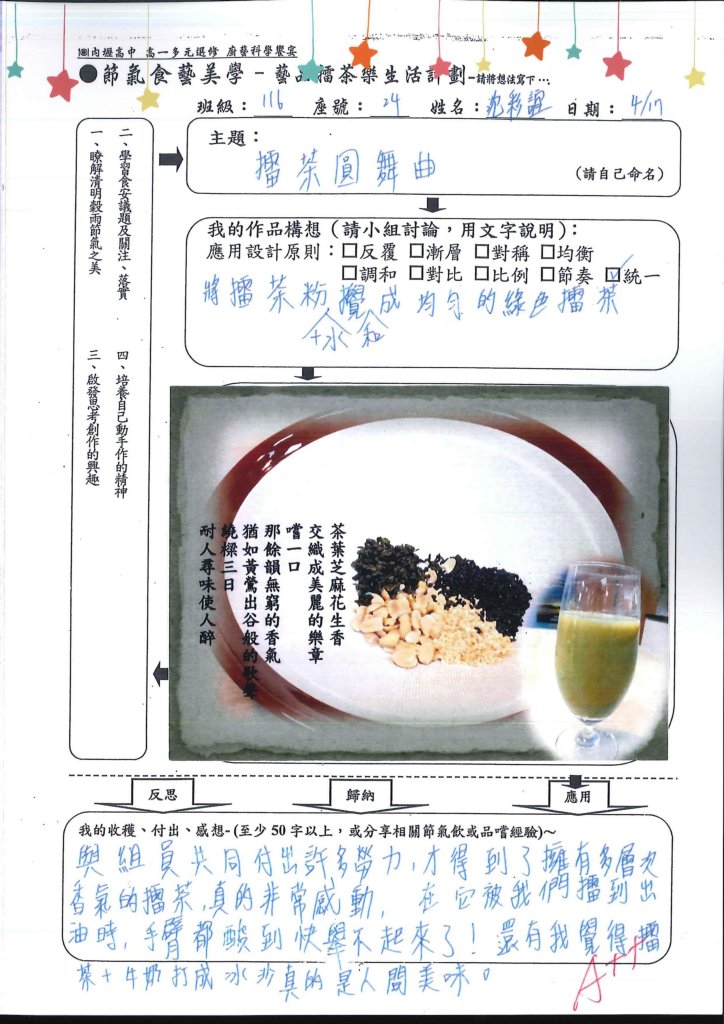 內壢高中 高一多元選修 廚藝科學饗宴
●節氣食藝美學-藝品擂茶樂生活計劃-請將想法寫下…
班級：116 座號：24 姓名： 日期：4/17
一、瞭解清明穀雨節氣之美
二、學習食安議題及關注、落實
三、啟發思考創作的興趣
四、培養自己動手作的精神
主題：
擂茶圓舞曲
(請自己命名)
我的作品構想（請小組討論，用文字說明）：
應用設計原則：□反覆 □漸層 □對稱 □均衡
□調和 □對比 □比例 □節奏 ☑統一
將擂茶粉攪成均勻的綠色擂茶
+水 和
茶葉芝麻花生香
交織成美麗的樂章
嚐一口
那餘韻無窮的香氣
猶如黃鶯出谷般的歌聲
繞樑三日
耐人尋味使人醉
反思 歸納 應用
我的收獲、付出、感想-(至少 50 字以上，或分享相關節氣飲或品嚐經驗)~
與組員共同付出許多勞力,才得到了擁有多層次
香氣的擂茶,真的非常感動, 在它被我們擂到出
油時,手臂都酸到快舉不起來了! 還有我覺得擂
茶+牛奶打成冰沙真的是人間美味。
A++